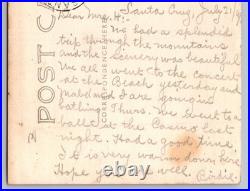 POST C
CORRESPONDENCE HERE
Santa Cruz July 21/
Dear Mrs. H:-
We had a splendid
trip through the mountains
and the scenery was beautiful
We all went to the concert
at the Beach yesterday and
Mabel and I are going in
bathing Thurs. We went to a
ball at the Casino last
night. Had a good time,
it is very warm down here
Hope you are well.
Birdie.